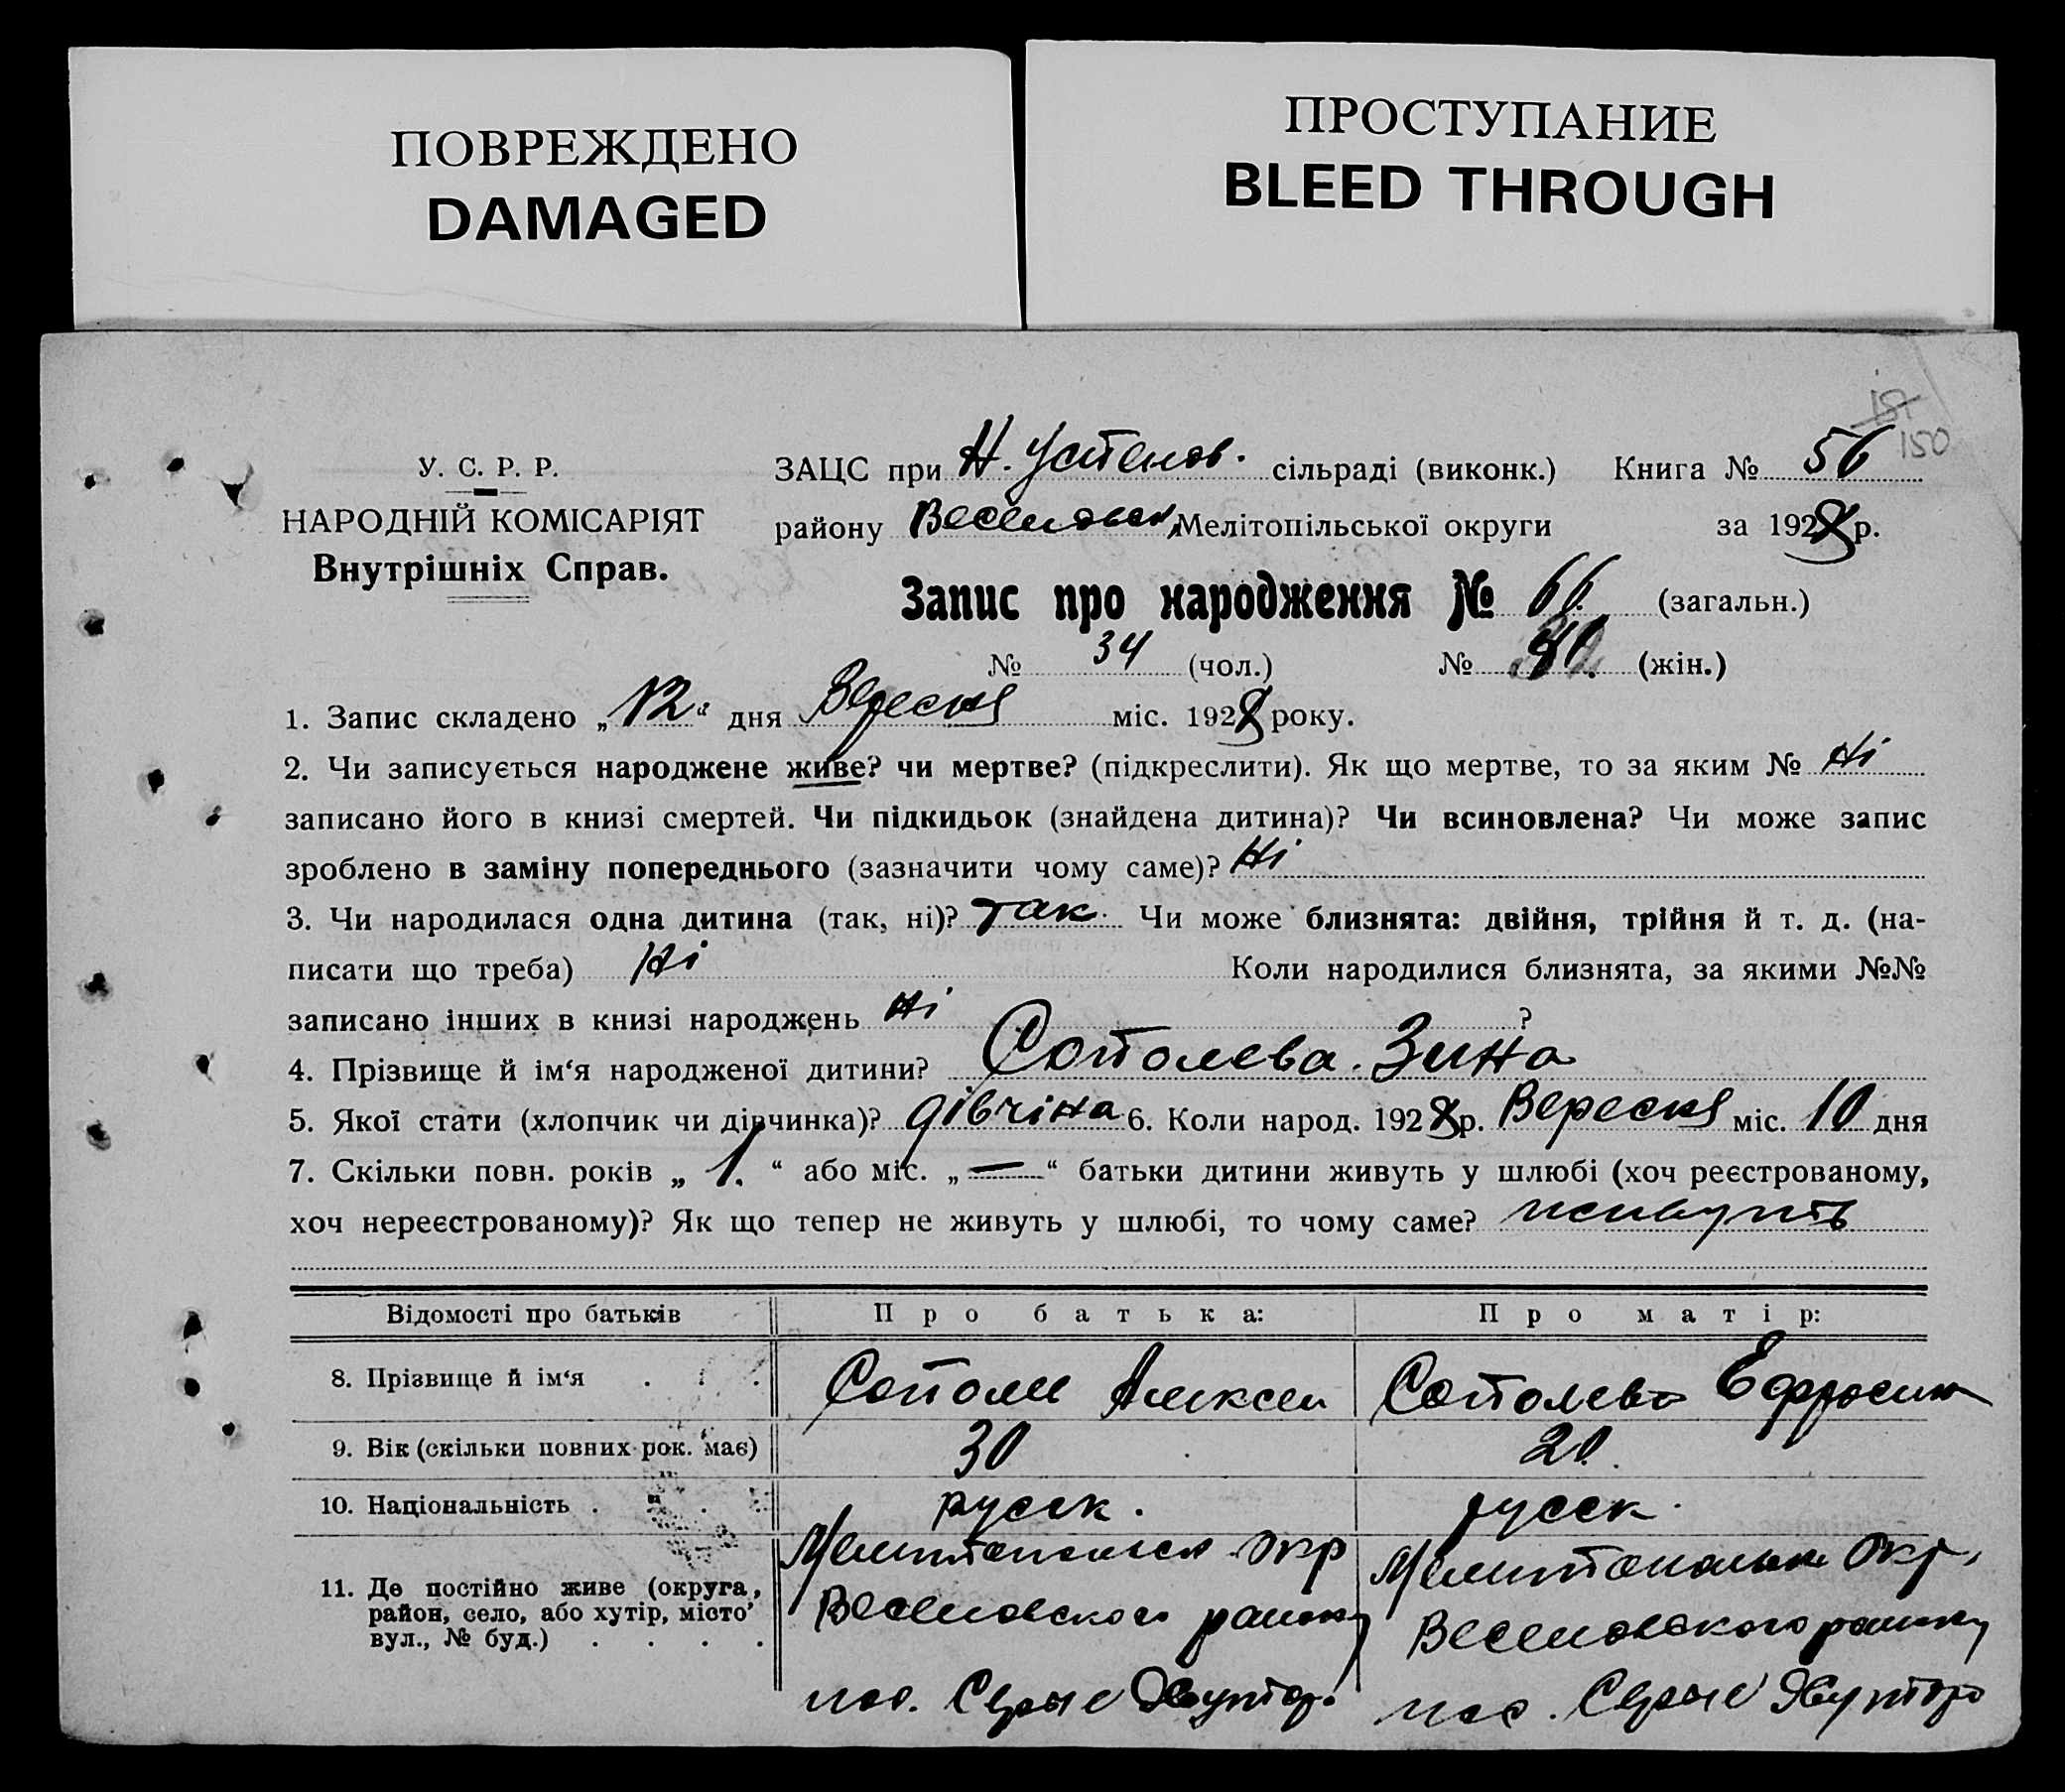 ПОВРЕЖДЕНО
DAMAGED
ПРОСТУПАНИЕ
BLEED THROUGH
151
150
У. С. Р. Р.
НАРОДНІЙ КОМІСАРІЯТ
Внутрішніх Справ.
ЗАЦС при Н. Успенов. сільраді (виконк.) Книга № 56
району Веселовск. Мелітопільської округи за 1928 р.
Запис про народження № 66. (загальн.)
№ 34 (чол.) № (жін.)
1. Запис складено „12" дня Вересня міс. 1928 року.
2. Чи записується народжене живе? чи мертве? (підкреслити). Як що мертве, то за яким № Ні
записано його в книзі смертей. Чи підкидьок (знайдена дитина)? Чи всиновлена? Чи може запис
зроблено в заміну попереднього (зазначити чому саме)? Ні
3. Чи народилася одна дитина (так, ні)? Так. Чи може близнята: двійня, трійня й т. д. (на-
писати що треба) Ні Коли народилися близнята, за якими №№
записано інших в книзі народжень Ні ?
4. Прізвище й ім‘я народженої дитини? Сополева. Зина
5. Якої стати (хлопчик чи дівчинка)? дівчіна 6. Коли народ. 1928 р. Вересня міс. 10 дня
7. Скільки повн. років „ 1. “ або міс. „ — “ батьки дитини живуть у шлюбі (хоч реєстрованому,
хоч нереєстрованому)? Як що тепер не живуть у шлюбі, то чому саме? живуть
Відомості про батьків Про батька: Про матір:
8. Прізвище й ім‘я . . . Сополев Алексеи Сополева Ефросин
9. Вік (скільки повних рок. має) 30 20.
10. Національність . . . . русск. русск.
11. Де постійно живе (округа, район, село, або хутір, місто, вул., № буд.) . . . .
Мелитопольск окр Веселовского району пос. Серые Хутор.
Мелитопольск Окр. Веселовского району пос. Серые Хутор